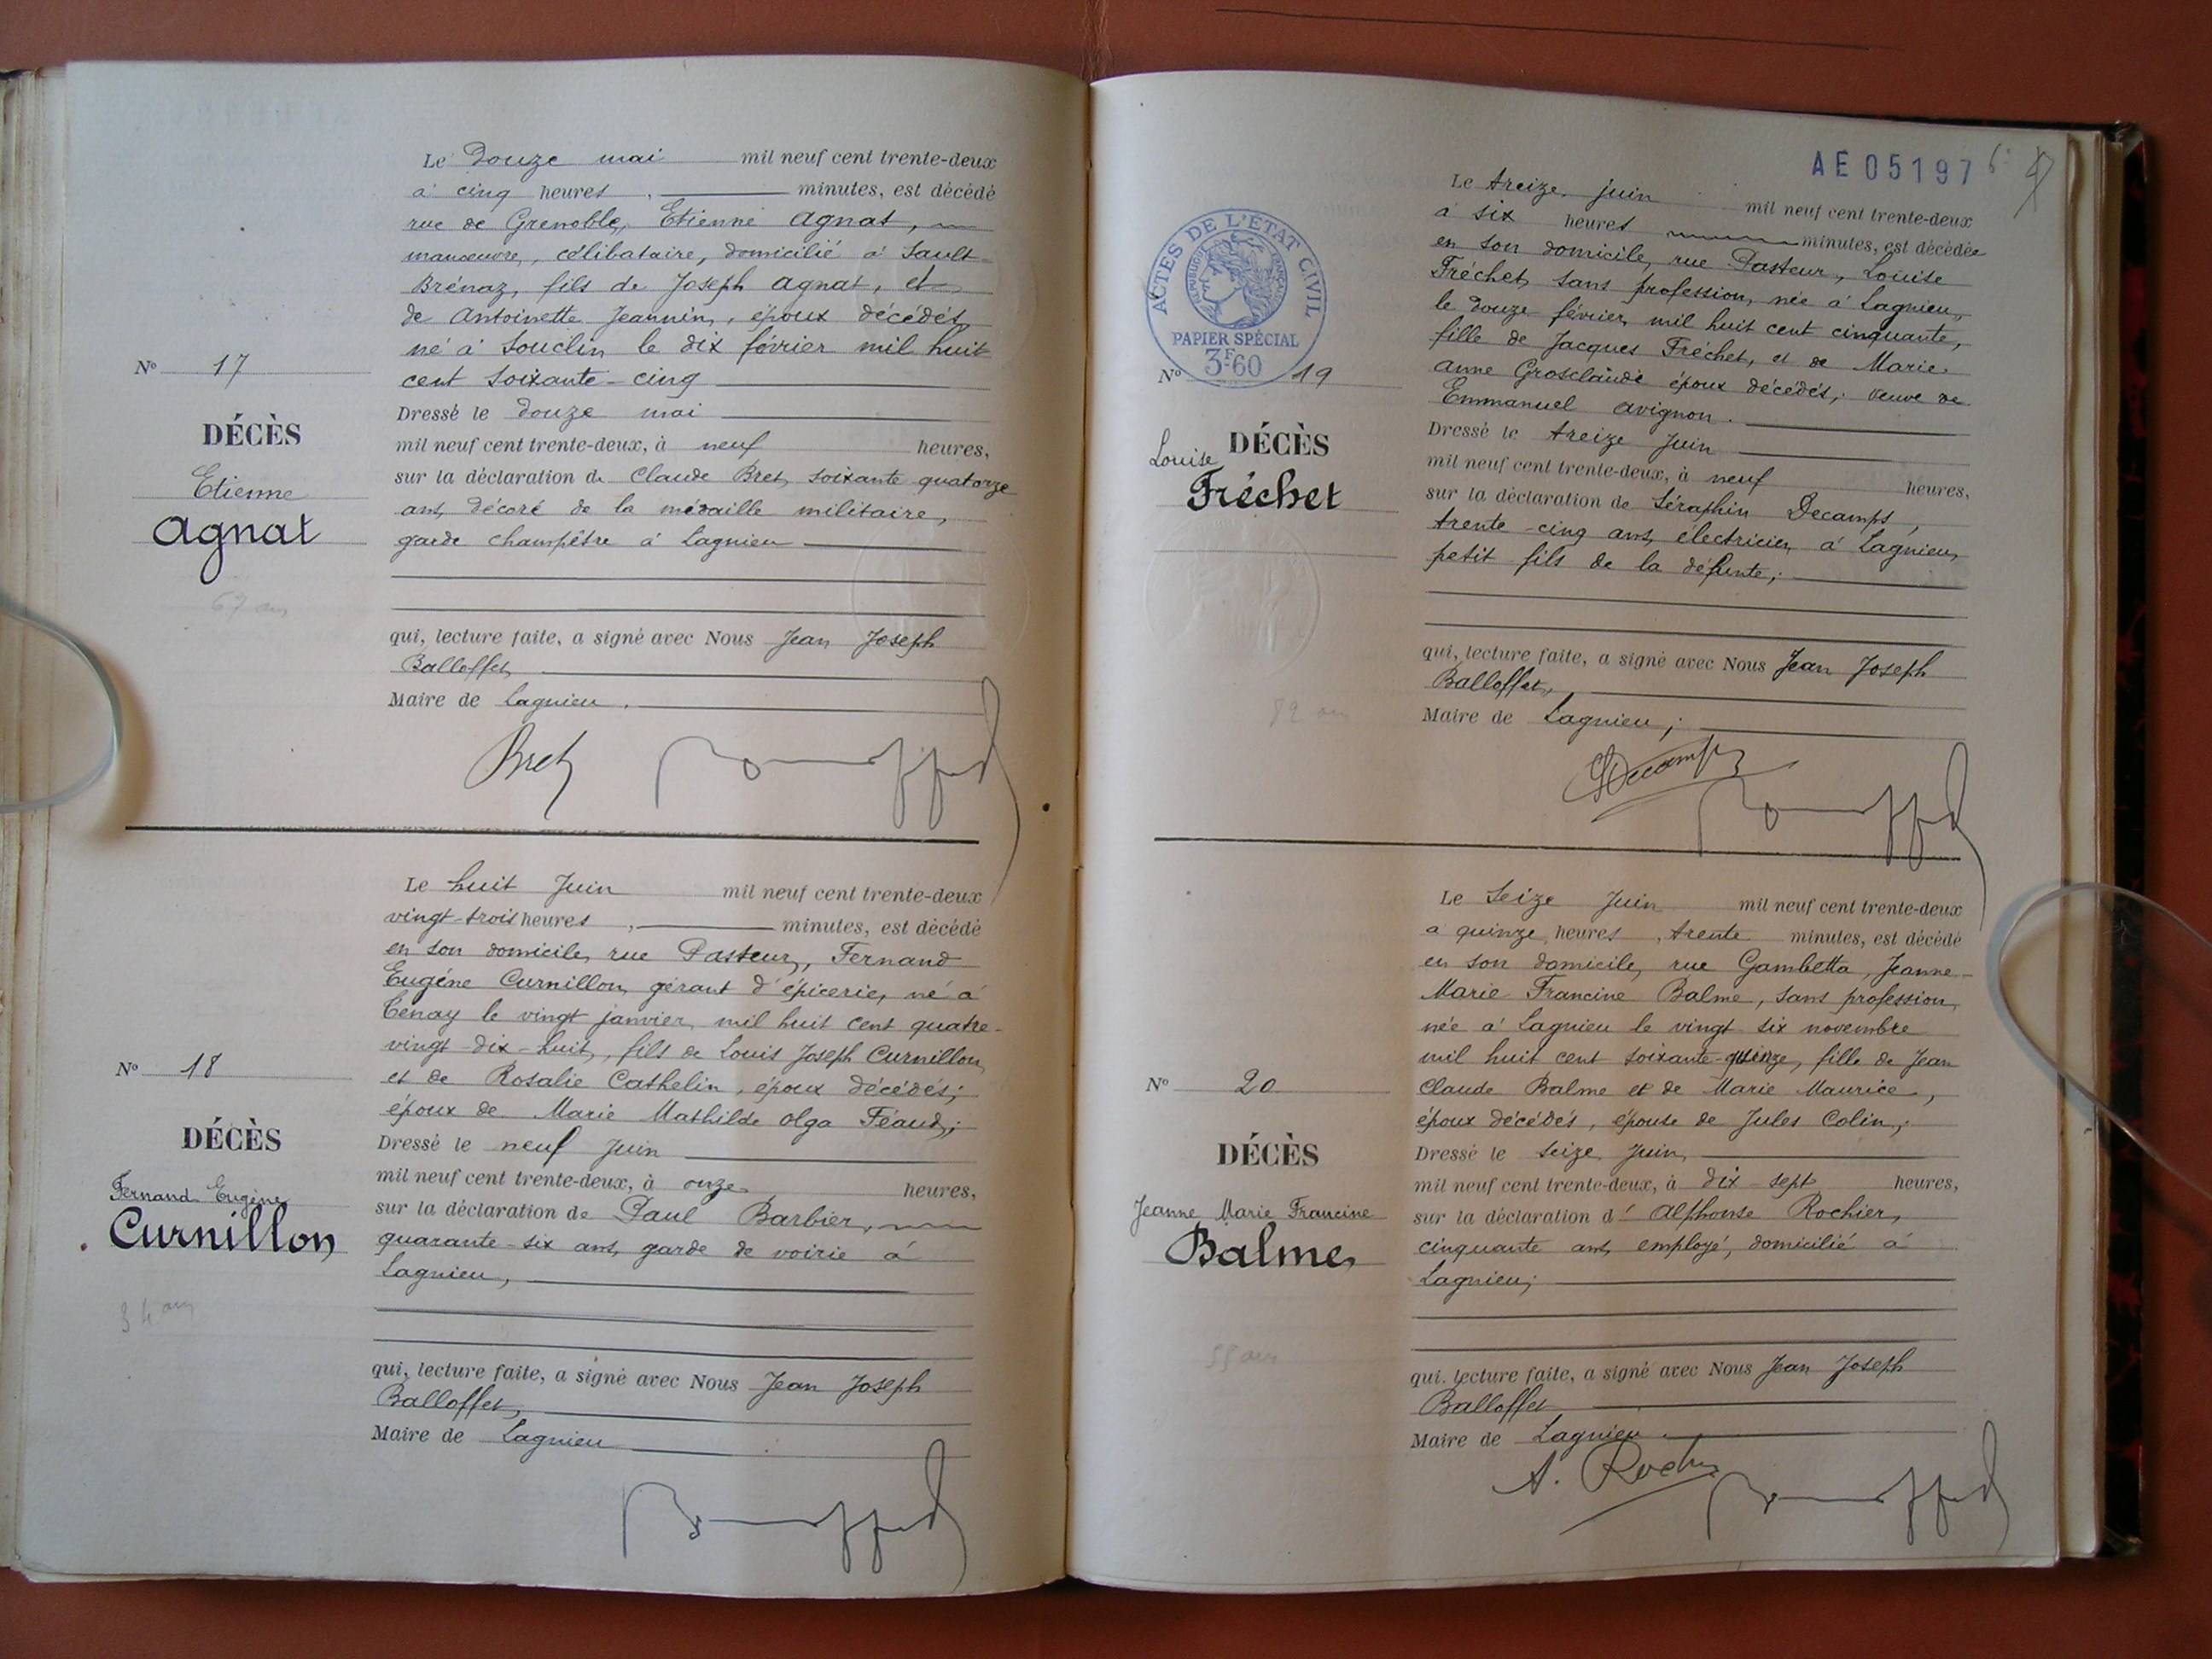 Le Douze mai mil neuf cent trente-deux
à cinq heures, minutes, est décédé
rue de Grenoble, Etienne Agnat,
manoeuvre, célibataire, domicilié à Sault-
Brénaz, fils de Joseph Agnat, et
de Antoinette Jeannin, époux décédés,
né à Souclin le dix février mil huit
cent soixante-cinq
Nº 17
DÉCÈS
Etienne
Agnat
67 ans
Dressé le Douze mai
mil neuf cent trente-deux, à neuf heures,
sur la déclaration de Claude Bret, soixante quatorze
ans, décoré de la médaille militaire,
garde champêtre à Lagnieu
qui, lecture faite, a signé avec Nous Jean Joseph
Balloffet,
Maire de Lagnieu.
Bret
Le huit Juin mil neuf cent trente-deux
vingt-trois heures, minutes, est décédé
en son domicile, rue Pasteur, Fernand
Eugéne Curnillon, gérant d'épicerie, né à
Tenay le vingt janvier mil huit cent quatre-
vingt-dix-huit, fils de Louis Joseph Curnillon
et de Rosalie Cathelin, époux décédés;
époux de Marie Mathilde Olga Féaud;
Nº 18
DÉCÈS
Fernand Eugène
Curnillon
34 ans
Dressé le neuf Juin
mil neuf cent trente-deux, à onze heures,
sur la déclaration de Paul Barbier,
quarante-six ans, garde de voirie à
Lagnieu,
qui, lecture faite, a signé avec Nous Jean Joseph
Balloffet,
Maire de Lagnieu
AE05197
ACTES DE L'ÉTAT CIVIL
PAPIER SPÉCIAL
3F60
Le treize juin mil neuf cent trente-deux
à six heures minutes, est décédée
en son domicile, rue Pasteur, Louise
Fréchet, sans profession, née à Lagnieu,
le douze février mil huit cent cinquante,
fille de Jacques Fréchet, et de Marie
Anne Grosclaude époux décédés; veuve de
Emmanuel Avignon.
Nº 19
DÉCÈS
Louise
Fréchet
82 ans
Dressé le treize Juin
mil neuf cent trente-deux, à neuf heures,
sur la déclaration de Séraphin Decamps,
trente-cinq ans, électricien à Lagnieu,
petit fils de la défunte;
qui, lecture faite, a signé avec Nous Jean Joseph
Balloffet,
Maire de Lagnieu;
SDecamps
Le Seize Juin mil neuf cent trente-deux
à quinze heures, trente minutes, est décédé
en son domicile, rue Gambetta, Jeanne-
Marie Francine Balme, sans profession,
née à Lagnieu le vingt six novembre
mil huit cent soixante-quinze, fille de Jean
Claude Balme et de Marie Maurice,
époux décédés, épouse de Jules Colin;
Nº 20
DÉCÈS
Jeanne Marie Francine
Balme
Dressé le seize Juin,
mil neuf cent trente-deux, à dix-sept heures,
sur la déclaration d' Alphonse Rochier,
cinquante ans, employé, domicilié à
Lagnieu;
qui, lecture faite, a signé avec Nous Jean Joseph
Balloffet
Maire de Lagnieu.